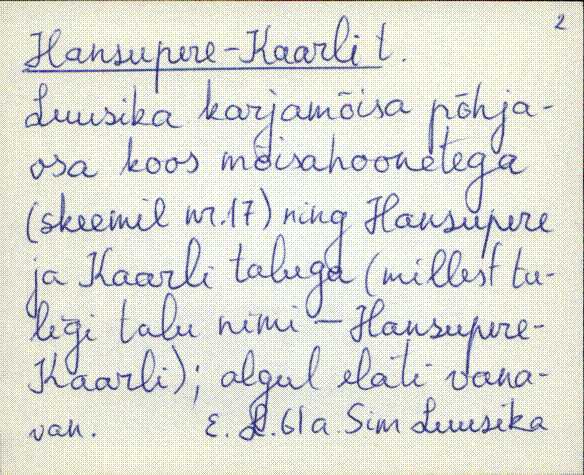 2
Hansupere-Kaarli t.
Luusika karjamõisa põhja-
osa koos mõisahoonetega
(skeemil nr.17) ning Hansupere
ja Kaarli taluga (millest tu-
legi talu nimi – Hansupere-
Kaarli); algul elati vana-
van. E. L. 61 a. Sim Luusika